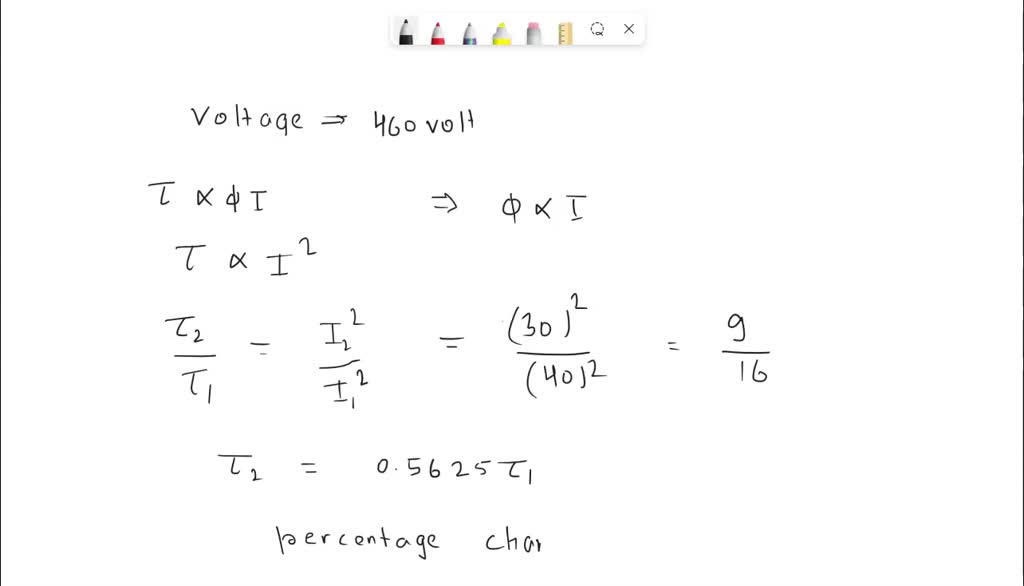 Voltage ⇒ 460 volt
τ ∝ ϕ I ⇒ ϕ ∝ I
τ ∝ I²
τ₂/τ₁ = I₂²/I₁² = (30)²/(40)² = 9/16
τ₂ = 0.5625 τ₁
percentage chan